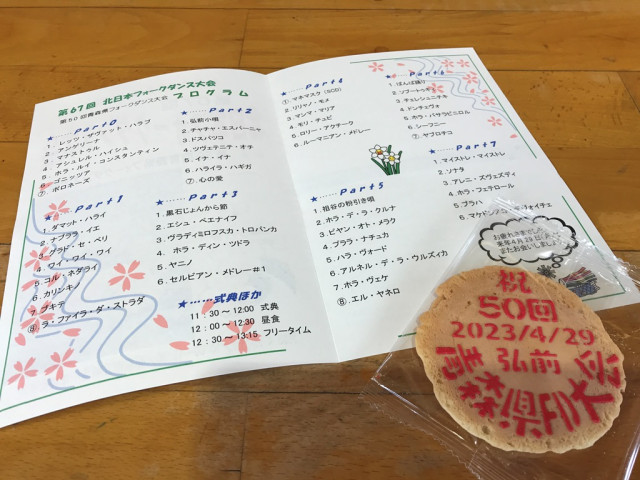 第67回 北日本フォークダンス大会
第50回青森県フォークダンス大会 プログラム
★……Part0
1. レッツ・ザヴァット・ハラブ
2. アンゲリーナ
3. マナストゥル
4. アシュレル・ハイシュ
5. ホラ・ルイ・コンスタンティン
6. ゴニッツア
⑦ ポロネーズ
Part1
1. ダマット・ハライ
2. ナブライ・イエ
3. グラド・セ・ベリ
4. ワイ・ワイ・ワイ
5. コル・ネダライ
6. カリンキノ
7. グキテ
⑧. ラ・ファイラ・ダ・ストラダ
★……Part2
1. 弘前小唄
2. チャチャ・エスパーニャ
3. ドスパツコ
4. ツヴェテニテ・オチ
5. イナ・イナ
6. ハライラ・ハギガ
⑦. 心の愛
★……Part3
1. 黒石じょんから節
2. エシュ・ペエナイフ
3. ヴラディミロフスカ・トロパンカ
4. ホラ・ディン・ツドラ
5. ヤニノ
6. セルビアン・メドレー#1
★……式典ほか
11:30～12:00 式典
12:00～12:30 昼食
12:30～13:15 フリータイム
Part4
①. マネマスク (SCD)
2. リリャノ・モメ
3. マンマ・マリア
4. モリ・チュピ
5. ロリー・アクチーク
6. ルーマニアン・メドレー
Part5
1. 祖谷の粉引き唄
2. ホラ・デ・ラ・クルナ
3. ビヤン・オト・メラク
4. ブララ・ナチュカ
5. ハラ・ヴォード
6. アルネル・デ・ラ・ウルズィカ
7. ホラ・ヴェケ
⑧. エル・ヤネロ
Part6
1. ばんば踊り
2. ソプートゥキ
3. チェレシュニチキ
4. ドンチェヴォ
5. ホラ・パサラビロル
6. シーフニー
⑦. ヤブロチコ
Part7
1. マイストレ・マイストレ
2. ソナタ
3. アレニ・ズヴェズディ
4. ホラ・フェテロール
5. プラハ
お疲れさまでした
来年4月29日
またお会いしましょう
祝
50回
2023/4/29
弘前
青森県FD大会